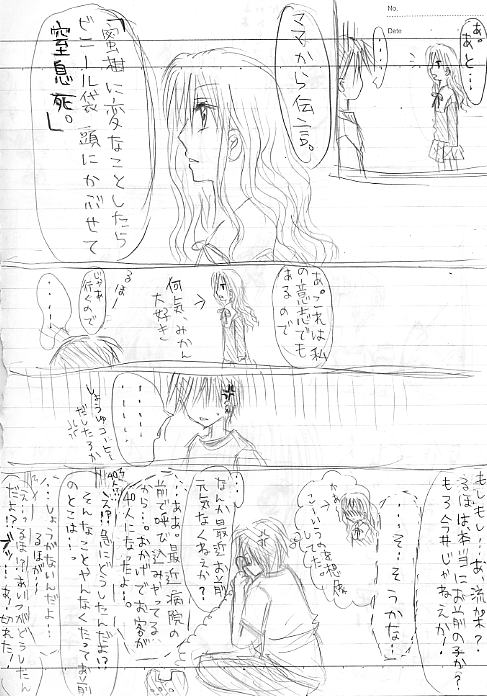 No.
Date
あ。
あと…
……
ママから伝言。
「蜜柑に変なことしたら
ビニール袋頭にかぶせて
窒息死。」
あ。これは私
の意志でも
あるので
何気、みかん
大好き
るぽ
じゃあ
行くので
……
……
しょうゆコーヒー
だしたろか
もしもし…あ、流架?
るぽは本当にお前の子か?
もろ今井じゃねえか!
…そ…そうかな…
なんか最近お前
元気なくねぇか?
…ああ。最近病院の
前で呼び込みやってる
から…。おかげでお客が
40人になったよ…。
40人…
え!?急にどうしたんだよ!?
そんなことやんなくたってお前
のとこは…
…しょうがないんだよ…
るぽが…
え…るぽ!?あいつがどうしたん
だよ!?ブッ…あ、切れた!